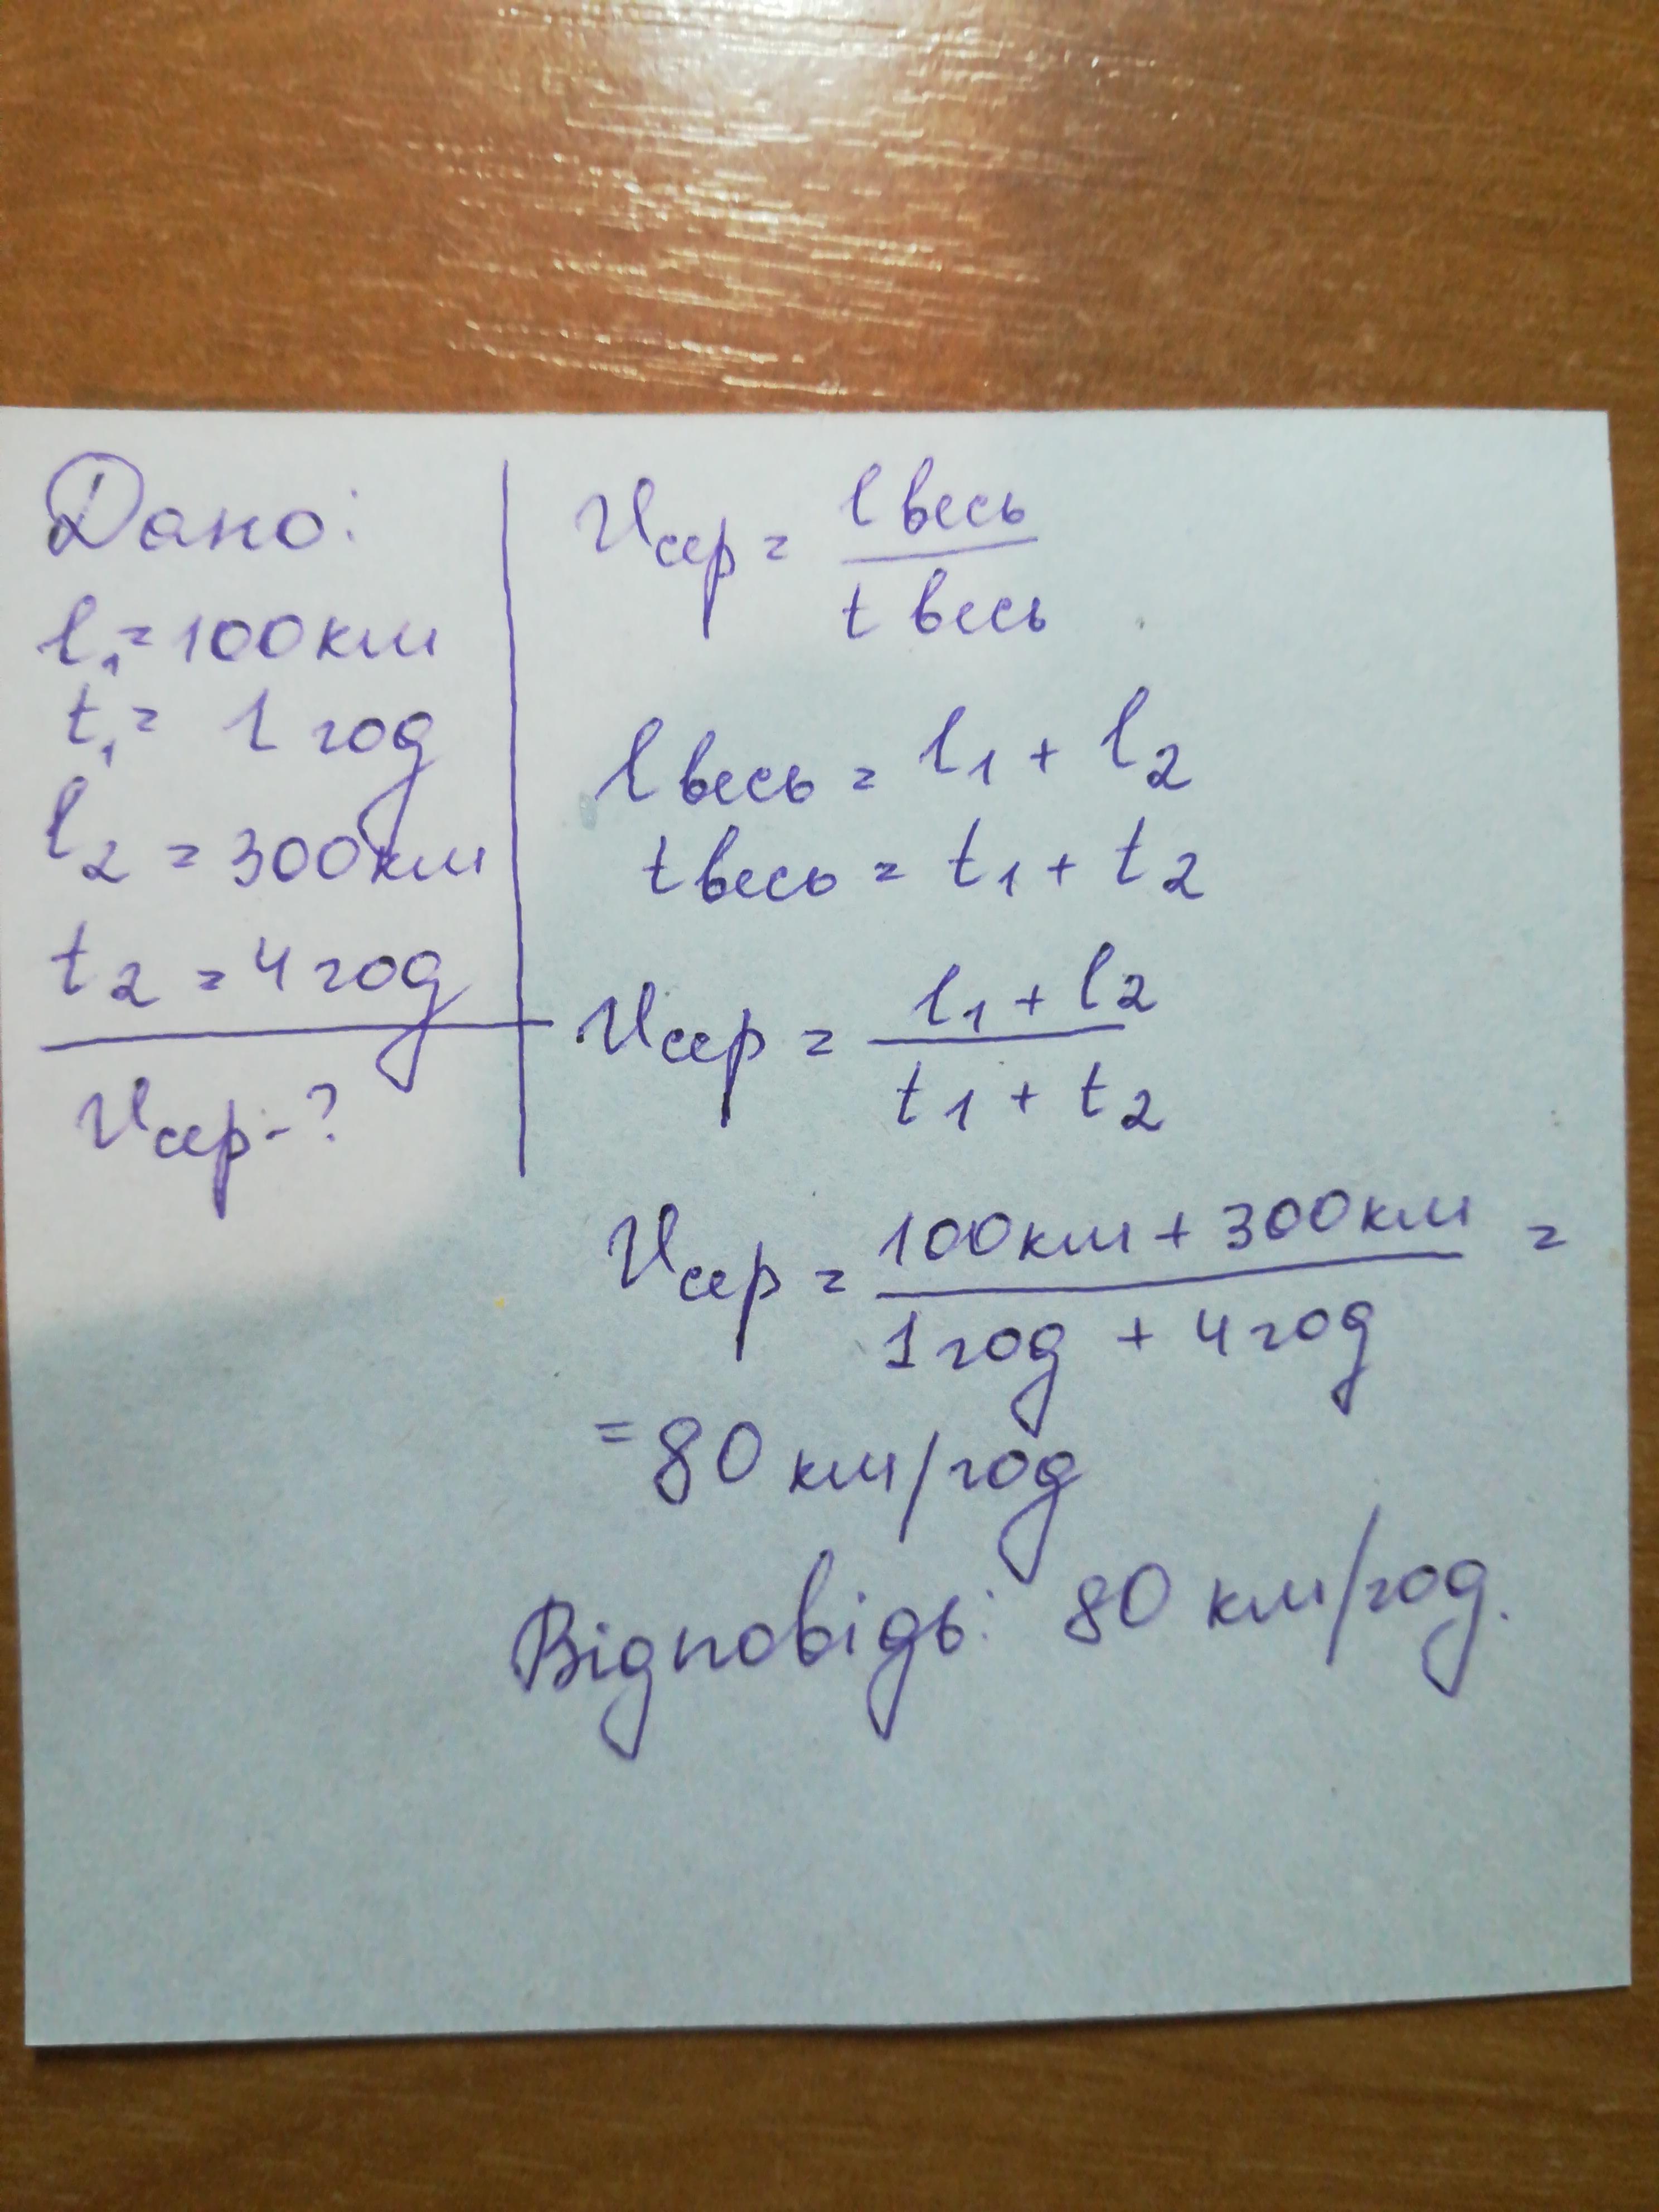 Дано:
l₁ = 100 км
t₁ = 1 год
l₂ = 300 км
t₂ = 4 год
υсер - ?
υсер = l весь / t весь
l весь = l₁ + l₂
t весь = t₁ + t₂
υсер = l₁ + l₂ / t₁ + t₂
υсер = 100 км + 300 км / 1 год + 4 год =
= 80 км/год
Відповідь: 80 км/год.